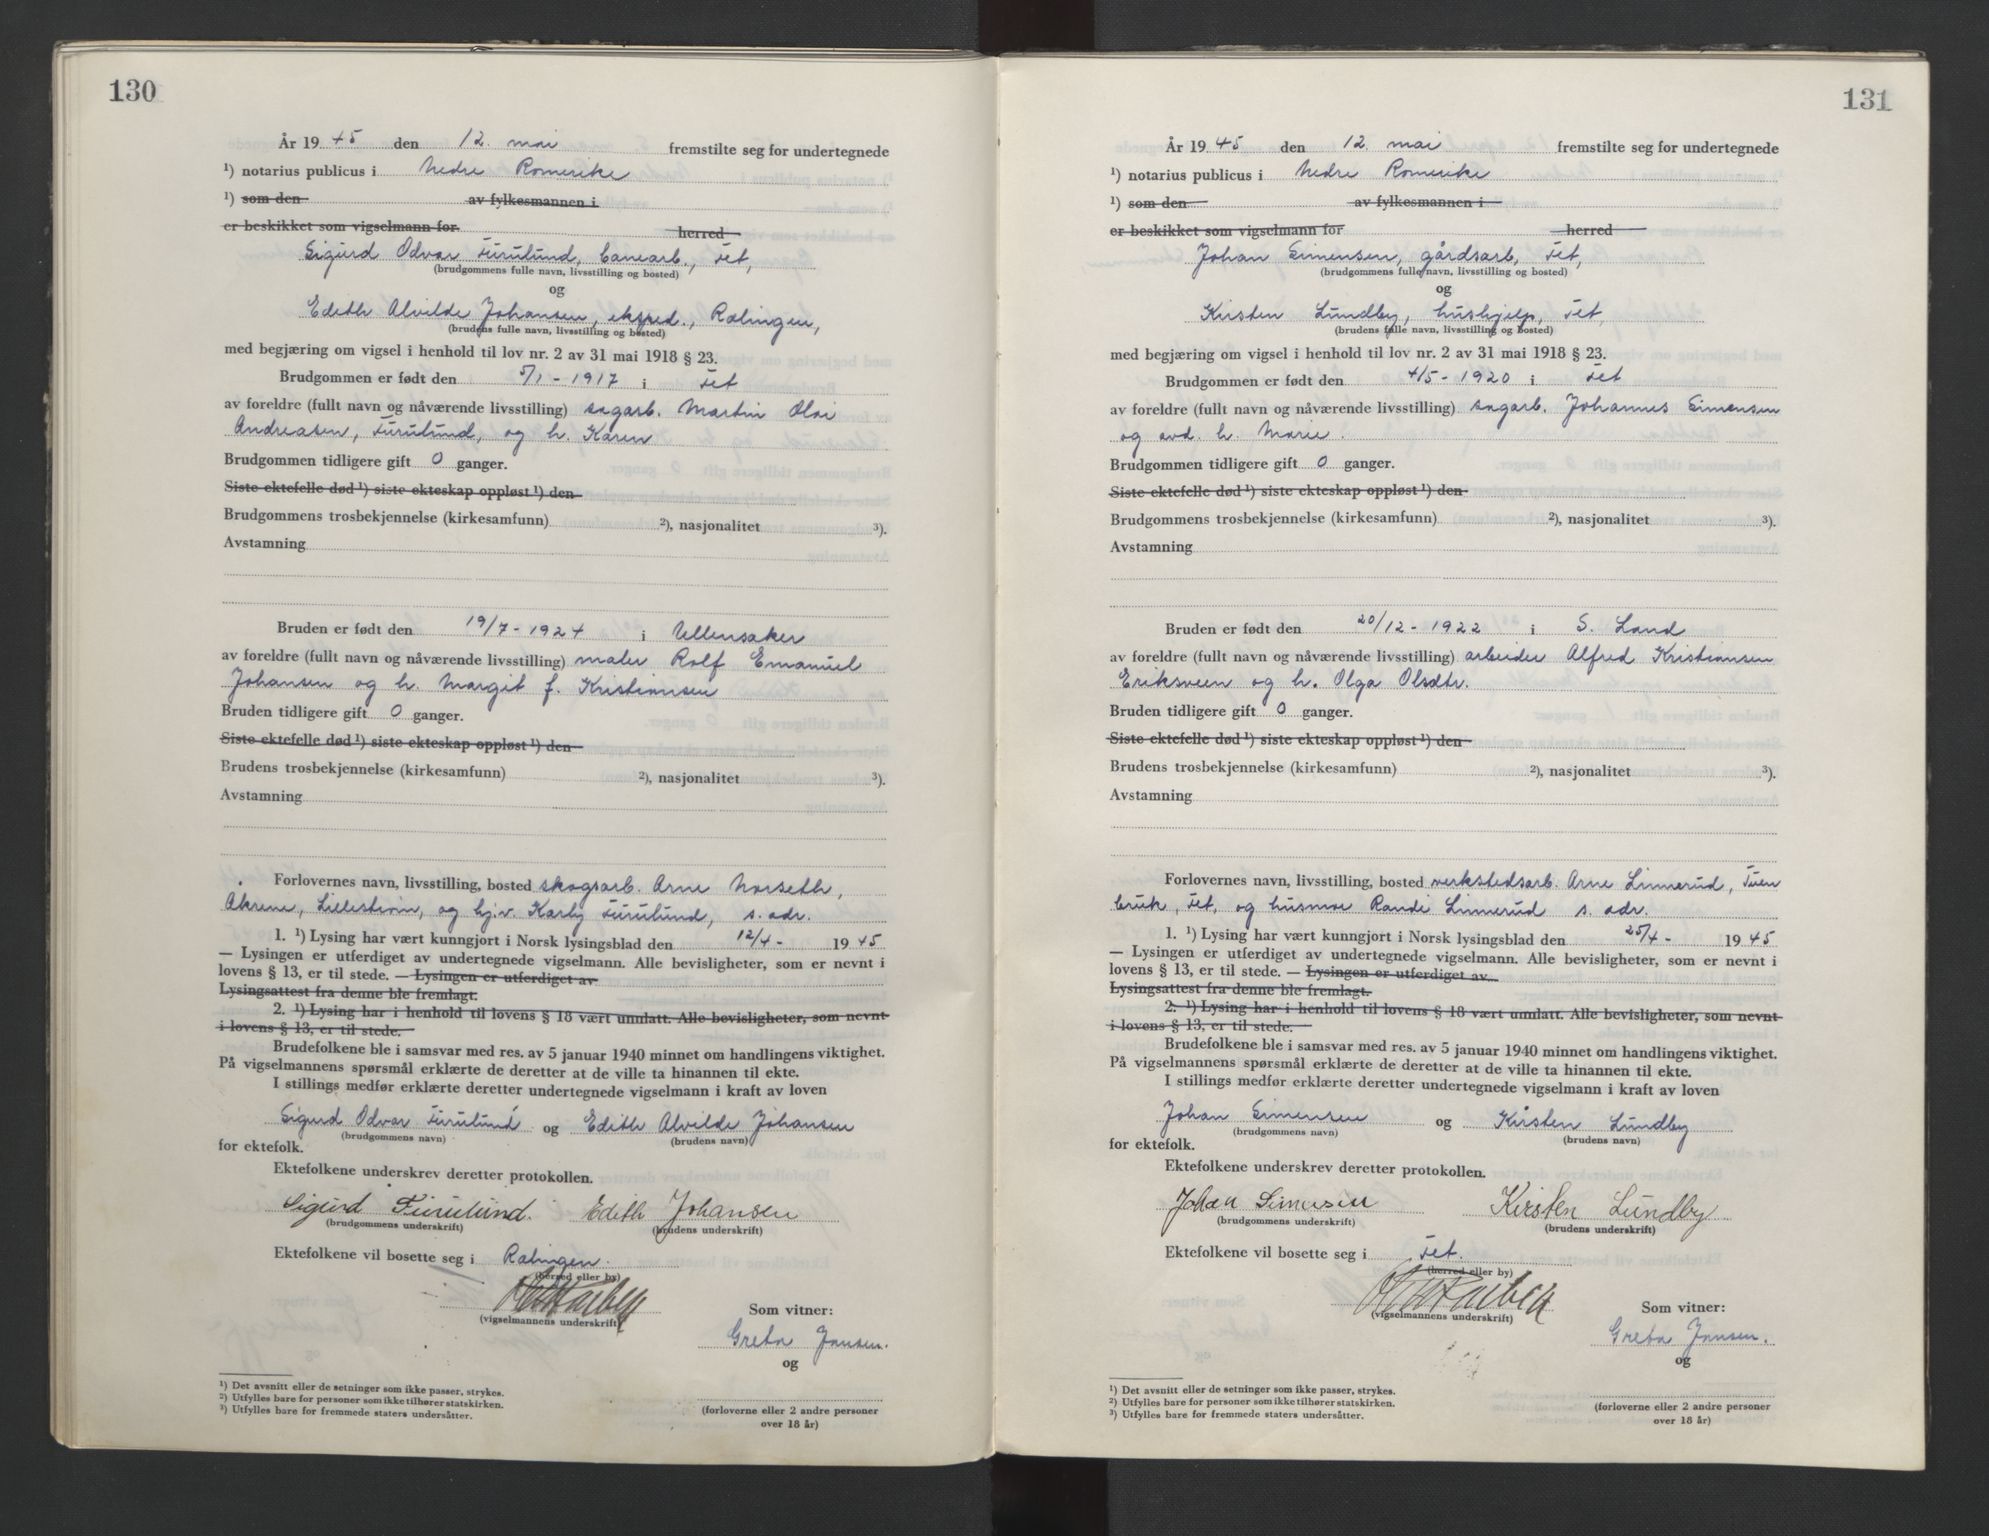 130
År 19 45 den 12. mai fremstilte seg for undertegnede
¹) notarius publicus i Nedre Romerike
¹) som den av fylkesmannen i
er beskikket som vigselmann for herred
Sigurd Odvar Furulund, banearb., Fet,
(brudgommens fulle navn, livsstilling og bosted)
og
Edith Alvilde Johansen, eksped., Rælingen,
(brudens fulle navn, livsstilling og bosted)
med begjæring om vigsel i henhold til lov nr. 2 av 31 mai 1918 § 23.
Brudgommen er født den 5/1 - 1917 i Fet
av foreldre (fullt navn og nåværende livsstilling) sagarb. Martin Olai
Andreasen, Furulund, og h. Karen
Brudgommen tidligere gift 0 ganger.
Siste ektefelle død ¹) siste ekteskap oppløst ¹) den
Brudgommens trosbekjennelse (kirkesamfunn) ²), nasjonalitet ³).
Avstamning
Bruden er født den 19/7 - 1924 i Ullensaker
av foreldre (fullt navn og nåværende livsstilling) maler Rolf Emanuel
Johansen og h. Margit f. Kristiansen
Bruden tidligere gift 0 ganger.
Siste ektefelle død ¹) siste ekteskap oppløst ¹) den
Brudens trosbekjennelse (kirkesamfunn) ²), nasjonalitet ³).
Avstamning
Forlovernes navn, livsstilling, bosted skogsarb. Arne Norseth,
Åkrene, Lillestrøm, og hj.v. Karly Furulund, s. adr.
1. ¹) Lysing har vært kunngjort i Norsk lysingsblad den 12/4 - 19 45
— Lysingen er utferdiget av undertegnede vigselmann. Alle bevisligheter, som er nevnt i
lovens § 13, er til stede. — Lysingen er utferdiget av
Lysingsattest fra denne ble fremlagt.
2. ¹) Lysing har i henhold til lovens § 18 vært unnlatt. Alle bevisligheter, som nevnt
i lovens § 13, er til stede.
Brudefolkene ble i samsvar med res. av 5 januar 1940 minnet om handlingens viktighet.
På vigselmannens spørsmål erklærte de deretter at de ville ta hinannen til ekte.
I stillings medfør erklærte deretter undertegnede vigselmann i kraft av loven
Sigurd Odvar Furulund og Edith Alvilde Johansen
(brudgommens navn) (brudens navn)
for ektefolk.
Ektefolkene underskrev deretter protokollen.
Sigurd Furulund. Edith Johansen
(brudgommens underskrift) (brudens underskrift)
Ektefolkene vil bosette seg i Rælingen.
(herred eller by)
(vigselmannens underskrift)
Som vitner:
Greta Jansen.
og
(forloverne eller 2 andre personer
over 18 år)
¹) Det avsnitt eller de setninger som ikke passer, strykes.
²) Utfylles bare for personer som ikke tilhører statskirken.
³) Utfylles bare for fremmede staters undersåtter.
131
År 19 45 den 12. mai fremstilte seg for undertegnede
¹) notarius publicus i Nedre Romerike
¹) som den av fylkesmannen i
er beskikket som vigselmann for herred
Johan Simensen, gårdsarb, Fet,
(brudgommens fulle navn, livsstilling og bosted)
og
Kirsten Lundby, hushjelp, Fet,
(brudens fulle navn, livsstilling og bosted)
med begjæring om vigsel i henhold til lov nr. 2 av 31 mai 1918 § 23.
Brudgommen er født den 4/5 - 1920 i Fet
av foreldre (fullt navn og nåværende livsstilling) sagarb. Johannes Simensen
og avd. h. Marie.
Brudgommen tidligere gift 0 ganger.
Siste ektefelle død ¹) siste ekteskap oppløst ¹) den
Brudgommens trosbekjennelse (kirkesamfunn) ²), nasjonalitet ³).
Avstamning
Bruden er født den 20/12 - 1922 i S. Land
av foreldre (fullt navn og nåværende livsstilling) arbeider Alfred Kristiansen
Eriksveen og h. Olga Olsdtr.
Bruden tidligere gift 0 ganger.
Siste ektefelle død ¹) siste ekteskap oppløst ¹) den
Brudens trosbekjennelse (kirkesamfunn) ²), nasjonalitet ³).
Avstamning
Forlovernes navn, livsstilling, bosted verkstedsarb. Arne Linnerud, Tuen
bruk, Fet, og husmor Randi Linnerud s. adr.
1. ¹) Lysing har vært kunngjort i Norsk lysingsblad den 25/4 - 19 45
— Lysingen er utferdiget av undertegnede vigselmann. Alle bevisligheter, som er nevnt i
lovens § 13, er til stede. — Lysingen er utferdiget av
Lysingsattest fra denne ble fremlagt.
2. ¹) Lysing har i henhold til lovens § 18 vært unnlatt. Alle bevisligheter, som nevnt
i lovens § 13, er til stede.
Brudefolkene ble i samsvar med res. av 5 januar 1940 minnet om handlingens viktighet.
På vigselmannens spørsmål erklærte de deretter at de ville ta hinannen til ekte.
I stillings medfør erklærte deretter undertegnede vigselmann i kraft av loven
Johan Simensen og Kirsten Lundby
(brudgommens navn) (brudens navn)
for ektefolk.
Ektefolkene underskrev deretter protokollen.
Johan Simensen Kirsten Lundby
(brudgommens underskrift) (brudens underskrift)
Ektefolkene vil bosette seg i Fet.
(herred eller by)
(vigselmannens underskrift)
Som vitner:
Greta Jansen.
og
(forloverne eller 2 andre personer
over 18 år)
¹) Det avsnitt eller de setninger som ikke passer, strykes.
²) Utfylles bare for personer som ikke tilhører statskirken.
³) Utfylles bare for fremmede staters undersåtter.